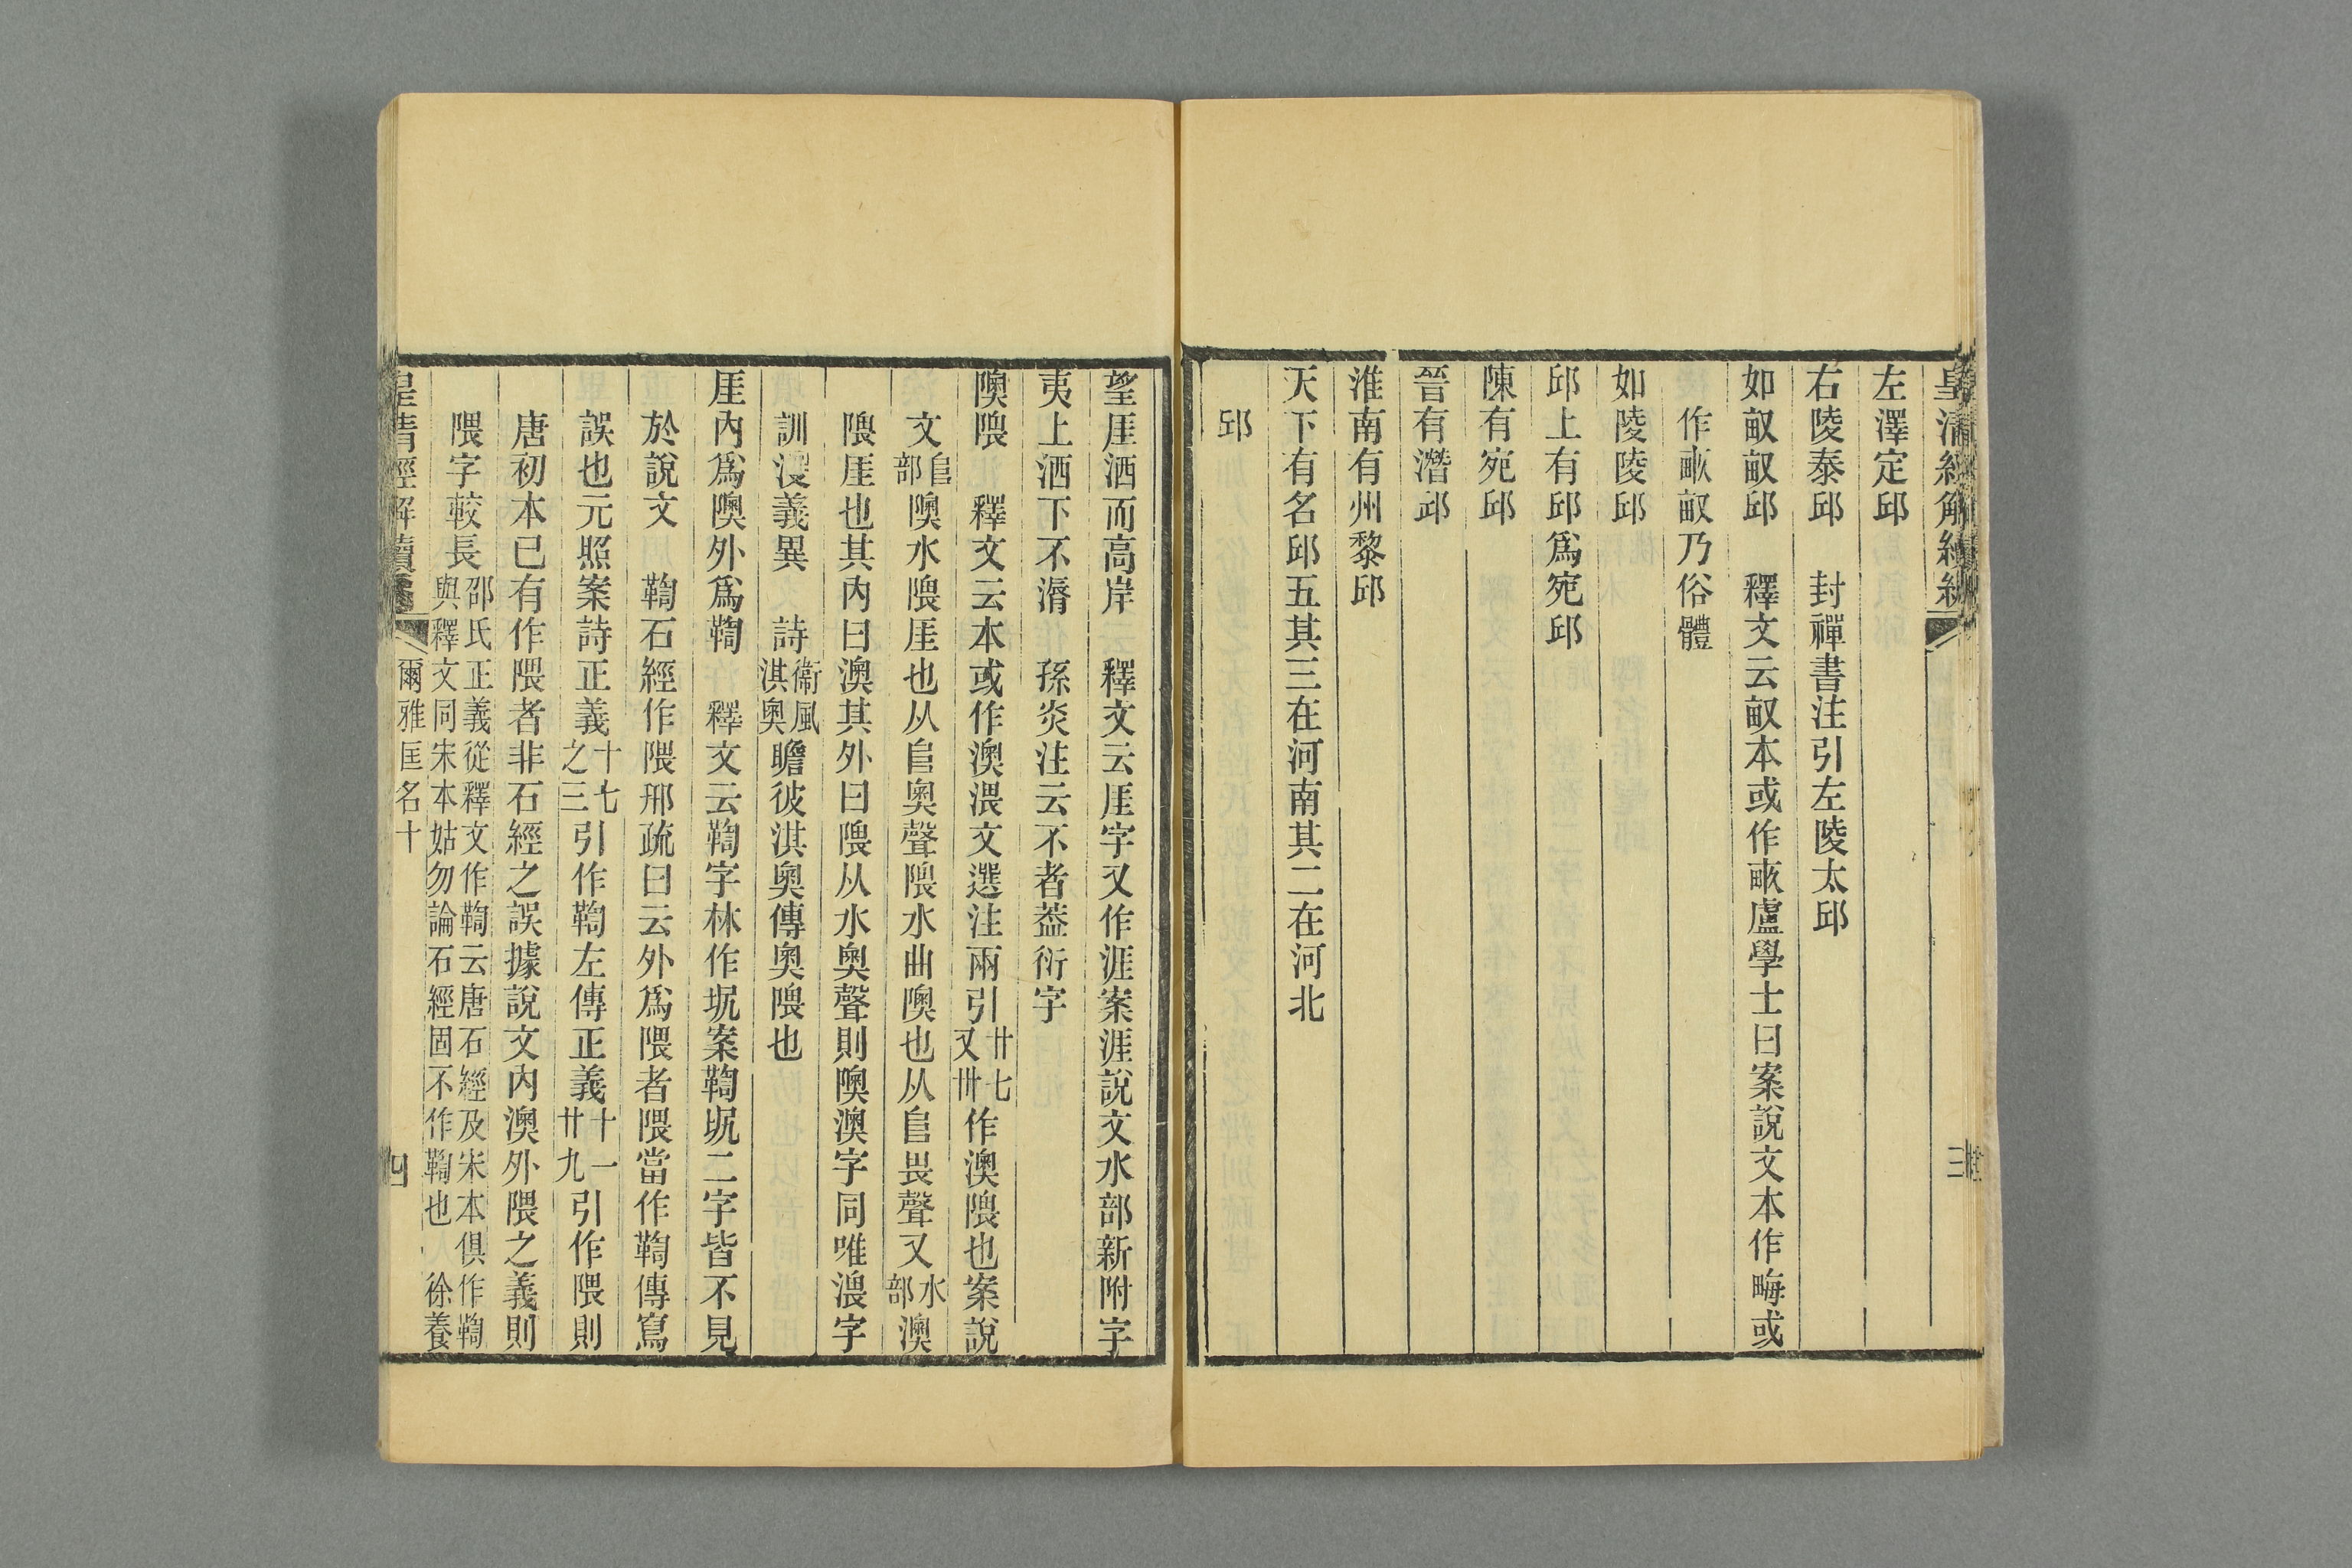 皇清經解續編
三
左澤定邱
右陵泰邱　封禪書注引左陵太邱
如畝畝邱　釋文云畝本或作畞盧學士曰案說文本作畮或
作畞畝乃俗體
如陵陵邱
邱上有邱爲宛邱
陳有宛邱
晉有潛邱
淮南有州黎邱
天下有名邱五其三在河南其二在河北
邱
望厓洒而高岸　釋文云厓字又作涯案涯說文水部新附字
夷上洒下不漘　孫炎注云不者葢衍字
隩隈　釋文云本或作澳渨文選注兩引廿七又卅作澳隈也案說
文𨸏部隩水隈厓也从𨸏奧聲隈水曲隩也从𨸏畏聲又水部澳
隈厓也其內曰澳其外曰隈从水奧聲則隩澳字同唯渨字
訓沒義異　詩衞風淇奧瞻彼淇奧傳奧隈也
厓內爲隩外爲鞫　釋文云鞫字林作坭案鞫坭二字皆不見
於說文　鞫石經作隈邢疏曰云外爲隈者隈當作鞫傳寫
誤也元照案詩正義十七之三引作鞫左傳正義十一廿九引作隈則
唐初本已有作隈者非石經之誤據說文內澳外隈之義則
隈字較長邵氏正義從釋文作鞫云唐石經及宋本俱作鞫
與釋文同宋本姑勿論石經固不作鞫也　徐養
皇清經解續
爾雅匡名十
四